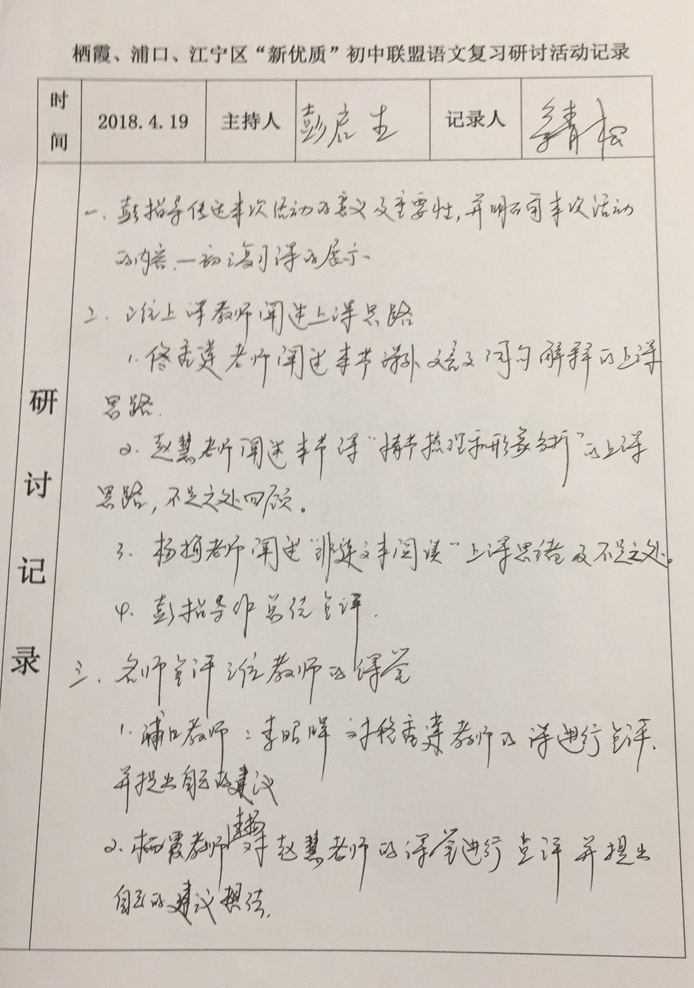 栖霞、浦口、江宁区“新优质”初中联盟语文复习研讨活动记录
时间 2018.4.19 主持人 彭启生 记录人 青松
研讨记录
一、彭指导传达本次活动的意义及重要性,并明确本次活动
的内容,一初复习课的展示、
二、三位上课教师阐述上课思路
1、佟秀莲老师阐述本节课外文言文词句解释的上课
思路.
2、赵慧老师阐述本节课“情节梳理和形象分析”的上课
思路,不足之处回顾。
3、杨梅老师阐述“非连文本阅读”上课思路及不足之处。
4、彭指导作总结点评.
三、名师点评三位教师的课堂
1、浦口教师:李昭晖 对佟秀莲教师的课进行点评、
并提出自己的建议
2、栖霞教师 对赵慧老师的课堂进行点评并提出
自己的建议想法.